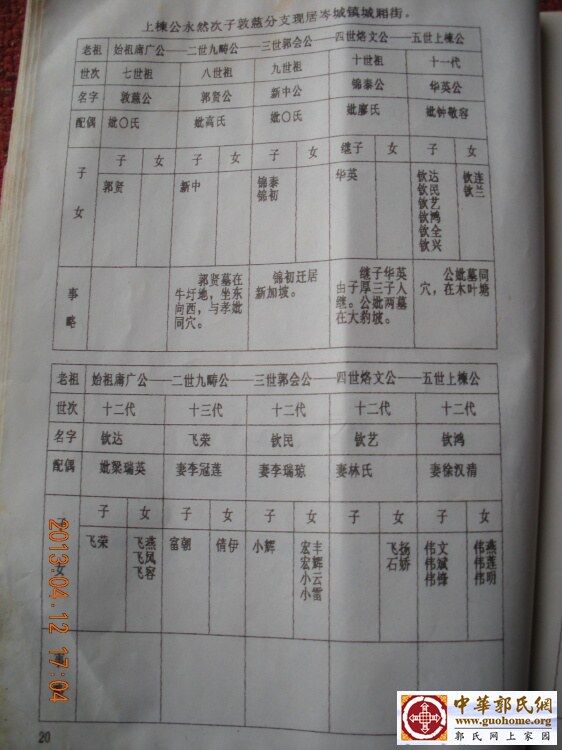 上栋公永然次子敦慈分支现居岑城镇城厢街。
老祖 始祖庸广公——二世九畴公——三世郭会公——四世烙文公——五世上栋公
世次 七世祖 八世祖 九世祖 十世祖 十一代
名字 敦慈公 郭贤公 新中公 锦泰公 华英公
配偶 妣〇氏 妣高氏 妣〇氏 妣廖氏 妣钟敬容
子女 子 女 子 女 子 女 继子 女 子 女
郭贤 新中 锦泰 华英 钦达 钦连
锦初 钦民 钦兰
钦艺
钦鸿
钦全
钦兴
事略 郭贤墓在 锦初迁居 继子华英 公妣墓同
牛圩地，坐东 新加坡。 由子厚三子入 穴，在木叶塘
向西，与孝妣 继。公妣两墓
同穴。 在大豹坡。
老祖 始祖庸广公——二世九畴公——三世郭会公——四世烙文公——五世上栋公
世次 十二代 十三代 十二代 十二代 十二代
名字 钦达 飞荣 钦民 钦艺 钦鸿
配偶 妣梁瑞英 妻李冠莲 妻李瑞琼 妻林氏 妻徐汉清
女 子 女 子 女 子 女 子 女 子 女
飞荣 飞燕 富朝 倩伊 小辉 宏丰 飞扬 伟文 伟燕
飞凤 宏辉 石娇 伟斌 伟莲
飞容 小云 伟锋 伟明
小雷
事
2013.04.12 17:04
20
中華郭氏網
www.guohome.org
郭氏网上家园